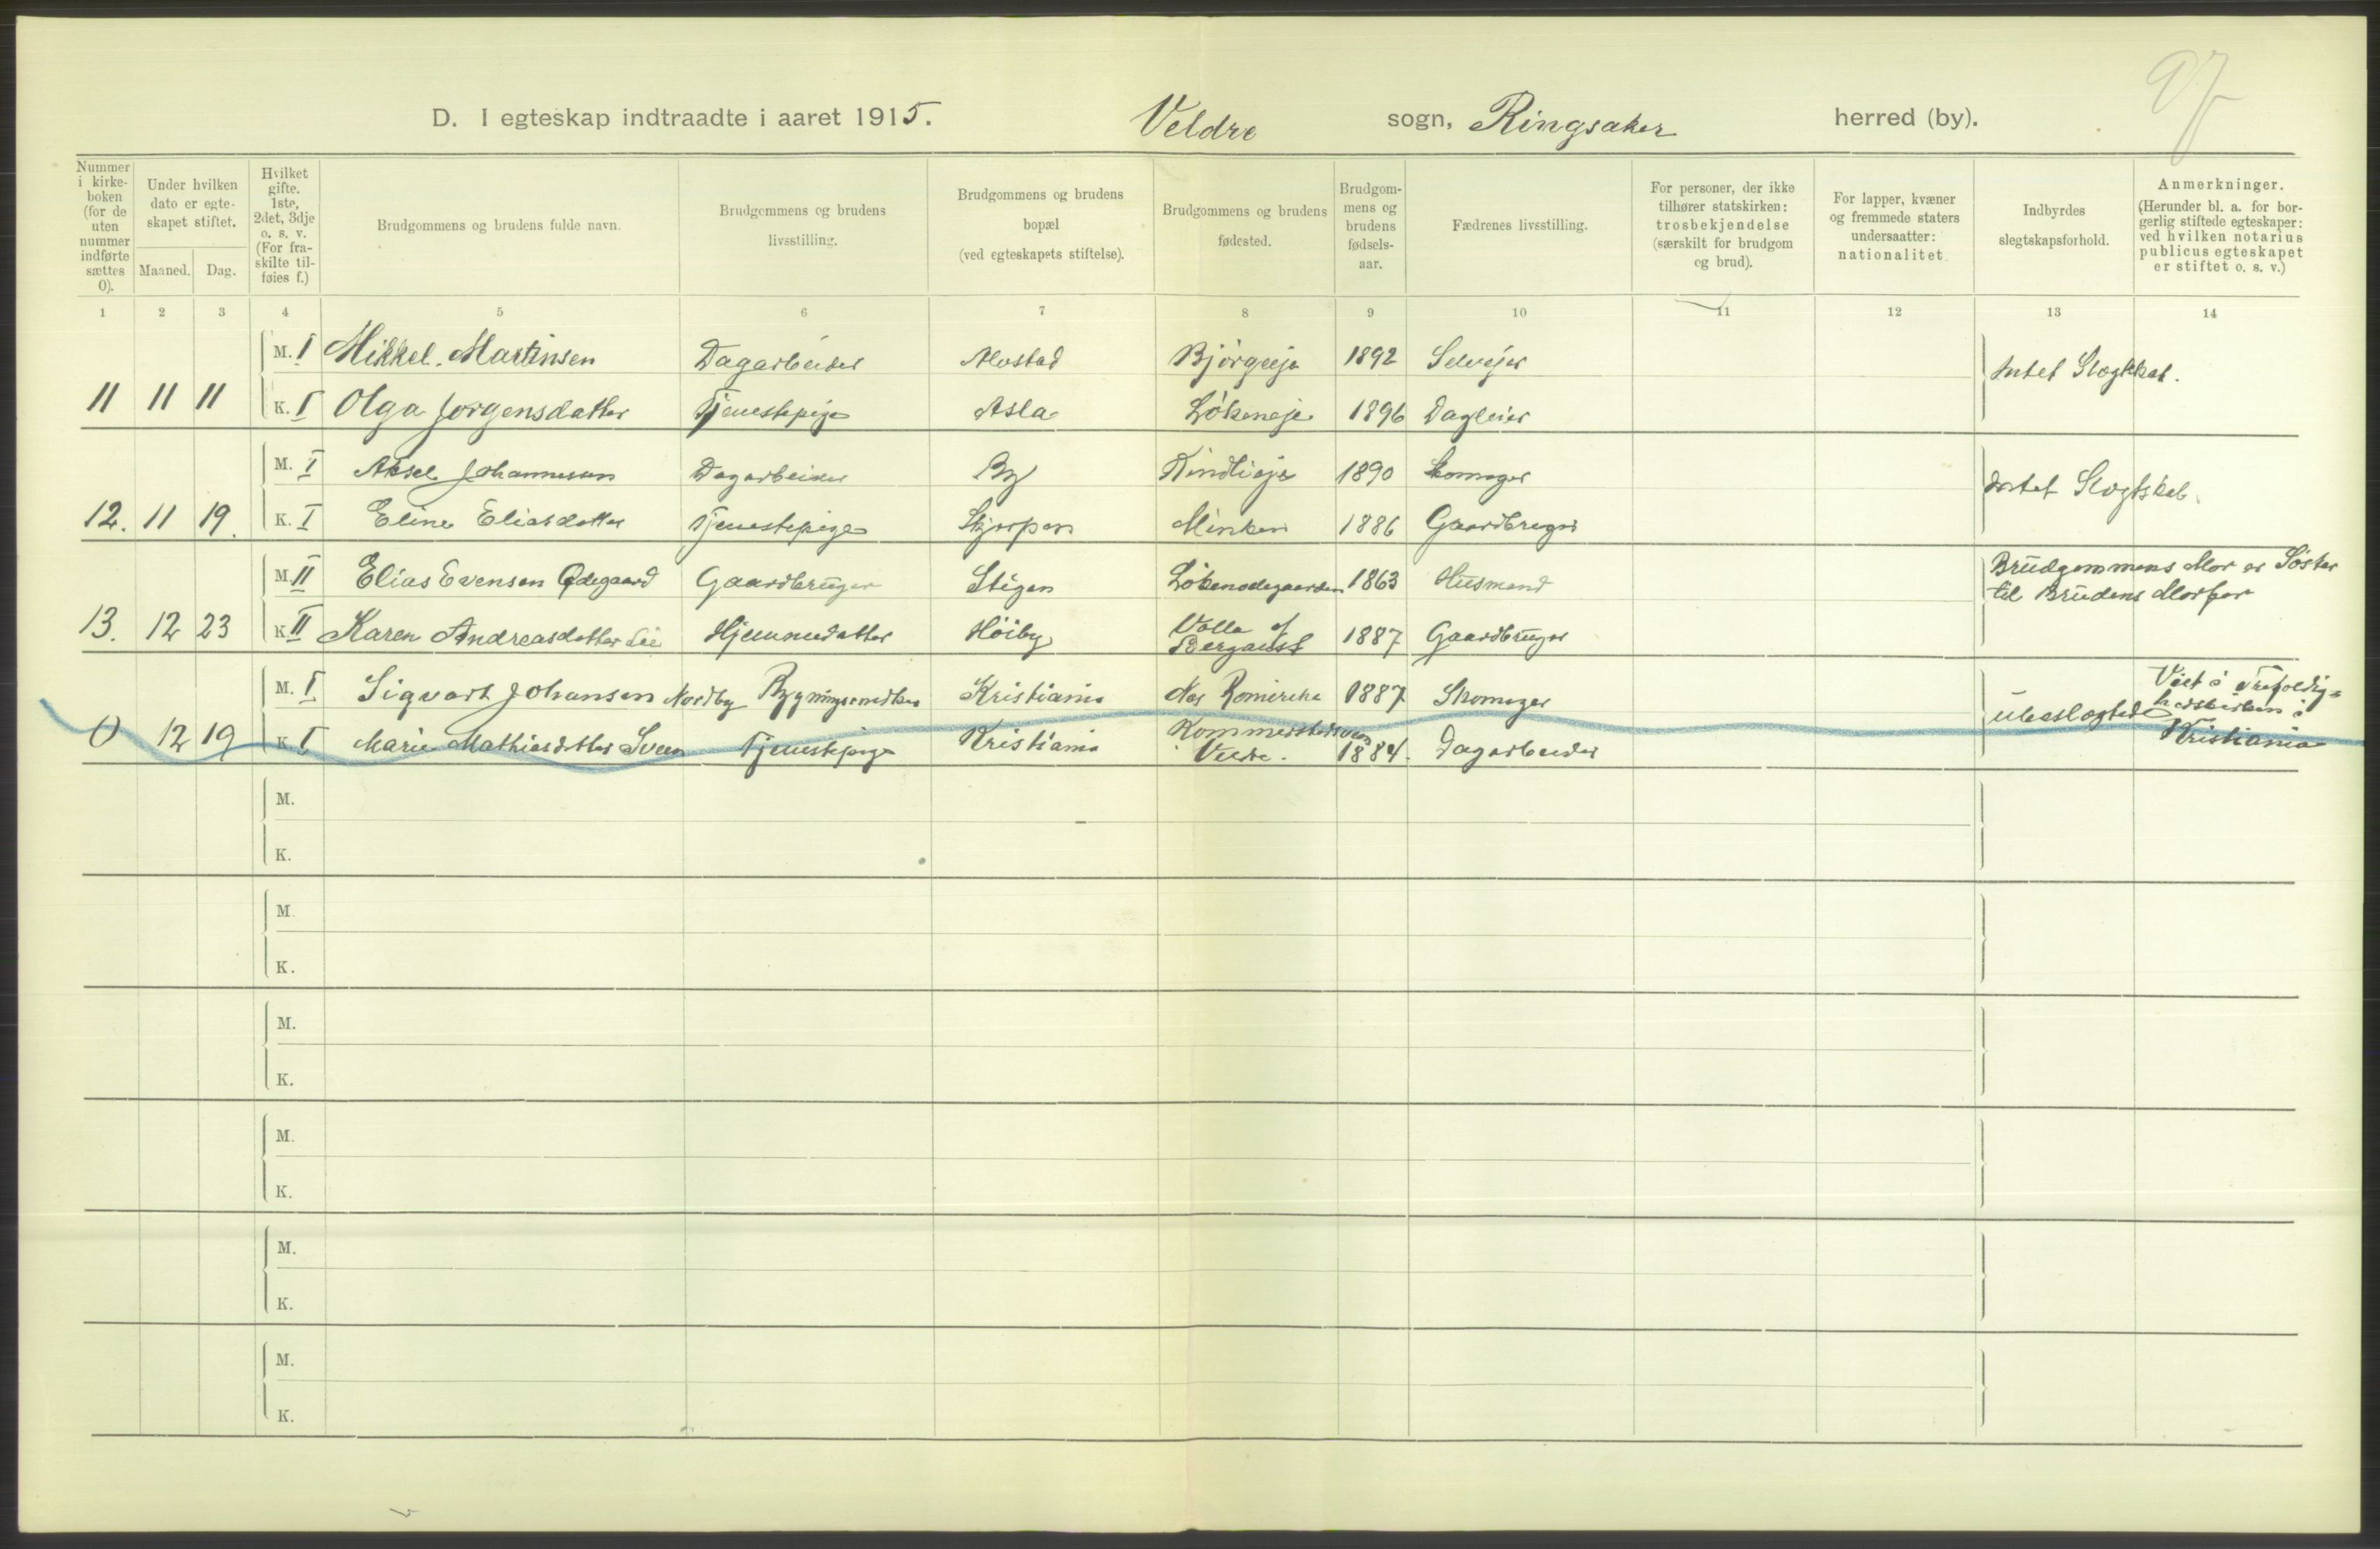 97
D. I egteskap indtraadte i aaret 1915. Veldre sogn, Ringsaker herred (by).
Nummer i kirke-boken (for de uten nummer indførte sættes 0).
Under hvilken dato er egte-skapet stiftet.
Maaned. Dag.
Hvilket gifte. 1ste, 2det, 3dje o. s. v. (For fra-skilte til-føies f.)
Brudgommens og brudens fulde navn.
Brudgommens og brudens livsstilling.
Brudgommens og brudens bopæl (ved egteskapets stiftelse).
Brudgommens og brudens fødested.
Brudgom-mens og brudens fødsels-aar.
Fædrenes livsstilling.
For personer, der ikke tilhører statskirken: trosbekjendelse (særskilt for brudgom og brud).
For lapper, kvæner og fremmede staters undersaatter: nationalitet.
Indbyrdes slegtskapsforhold.
Anmerkninger. (Herunder bl. a. for bor-gerlig stiftede egteskaper: ved hvilken notarius publicus egteskapet er stiftet o. s. v.)
1 2 3 4 5 6 7 8 9 10 11 12 13 14
M. I Mikkel Martinsen Dagarbeider Mostad Bjørgeeje 1892 Selvejer
Intet Slægtskab.
11 11 11 K. I Olga Jørgensdatter Tjenestepige Asla Løkeneje 1896 Dagleier
M. I Aksel Johannesen Dagarbeider By Kindlieje 1890 Skomager
Intet Slægtskab.
12. 11 19. K. I Eline Eliasdatter Tjenestepige Skjorpen Minken 1886 Gaardbruger
M. II Elias Evensen Ødegaard Gaardbruger Stigen Løkenødegaarden 1863 Husmand
Brudgommens Mor er Søster
til Brudens Morfar
13. 12 23 K. II Karen Andreasdatter Lie Hjemmedatter Høiby Volla af Bergaust 1887 Gaardbruger
M. I Sigvart Johansen Nordby Bygningssnedker Kristiania Nes Romerike 1887 Skomager
ubeslægted
Viet i Trefoldig=
hedskirken i
Kristiania
0 12 19 K. I Marie Mathiasdatter Sveen Tjenestepige Kristiania Kommerstadsveen Veldre. 1884. Dagarbeider
M.
K.
M.
K.
M.
K.
M.
K.
M.
K.
M.
K.